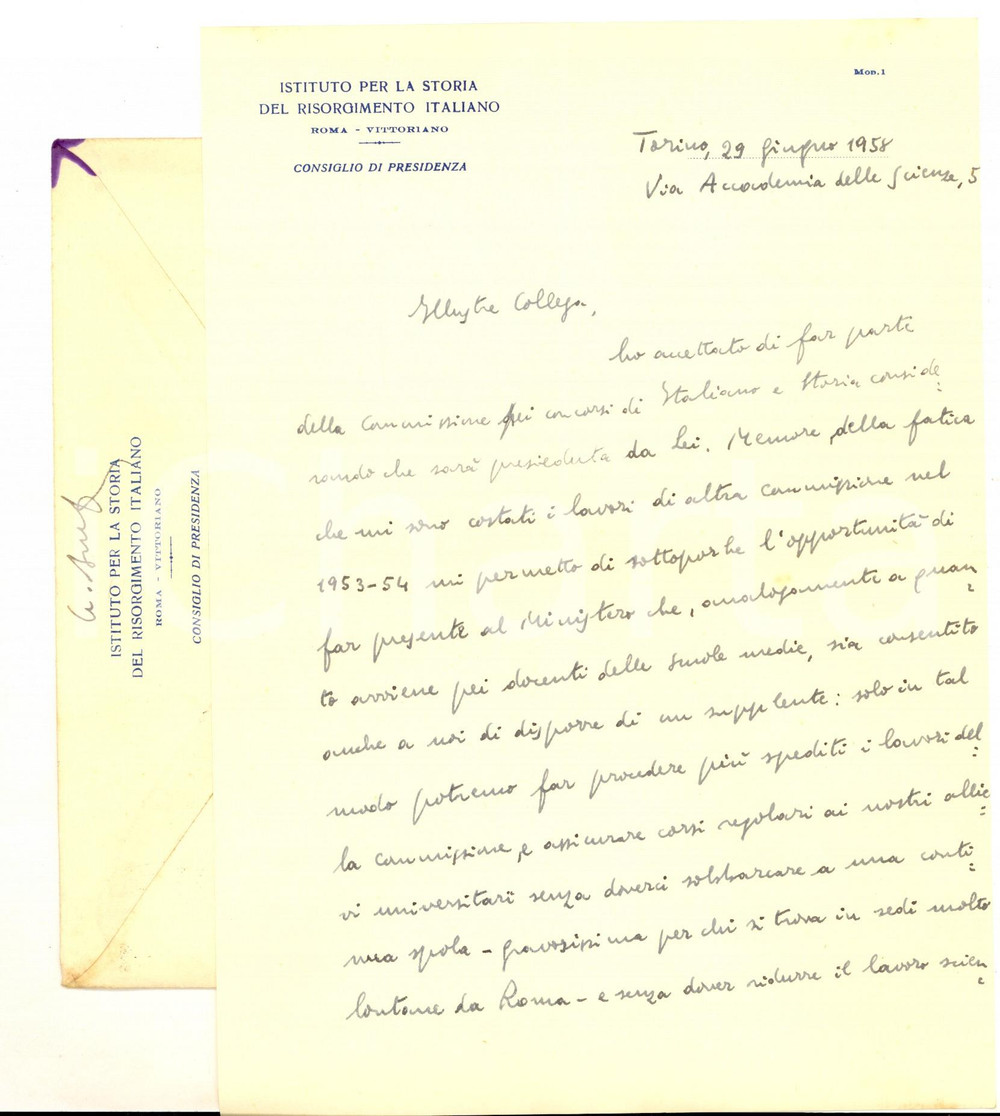 ISTITUTO PER LA STORIA
DEL RISORGIMENTO ITALIANO
ROMA - VITTORIANO
CONSIGLIO DI PRESIDENZA
Mon. 1
Torino, 29 giugno 1958
Via Accademia delle Scienze, 5
Illustre Collega,
ho accettato di far parte
della Commissione dei concorsi di Italiano e Storia conside
rando che sarà presieduta da Lei. Memore della fatica
che mi sono costati i lavori di altra commissione nel
1953-54 mi permetto di sottoporLe l'opportunità di
far presente al Ministero che, analogamente a quan
to avviene pei docenti delle scuole medie, sia consentito
anche a noi di disporre di un supplente: solo in tal
modo potremo far procedere più spediti i lavori del
la commissione, e assicurare corsi regolari ai nostri allie
vi universitarî senza doverci sobbarcare a una conti
nua spola - gravosissima per chi si trova in sedi molto
lontane da Roma - e senza dover ridurre il lavoro scien
ISTITUTO PER LA STORIA
DEL RISORGIMENTO ITALIANO
ROMA - VITTORIANO
CONSIGLIO DI PRESIDENZA